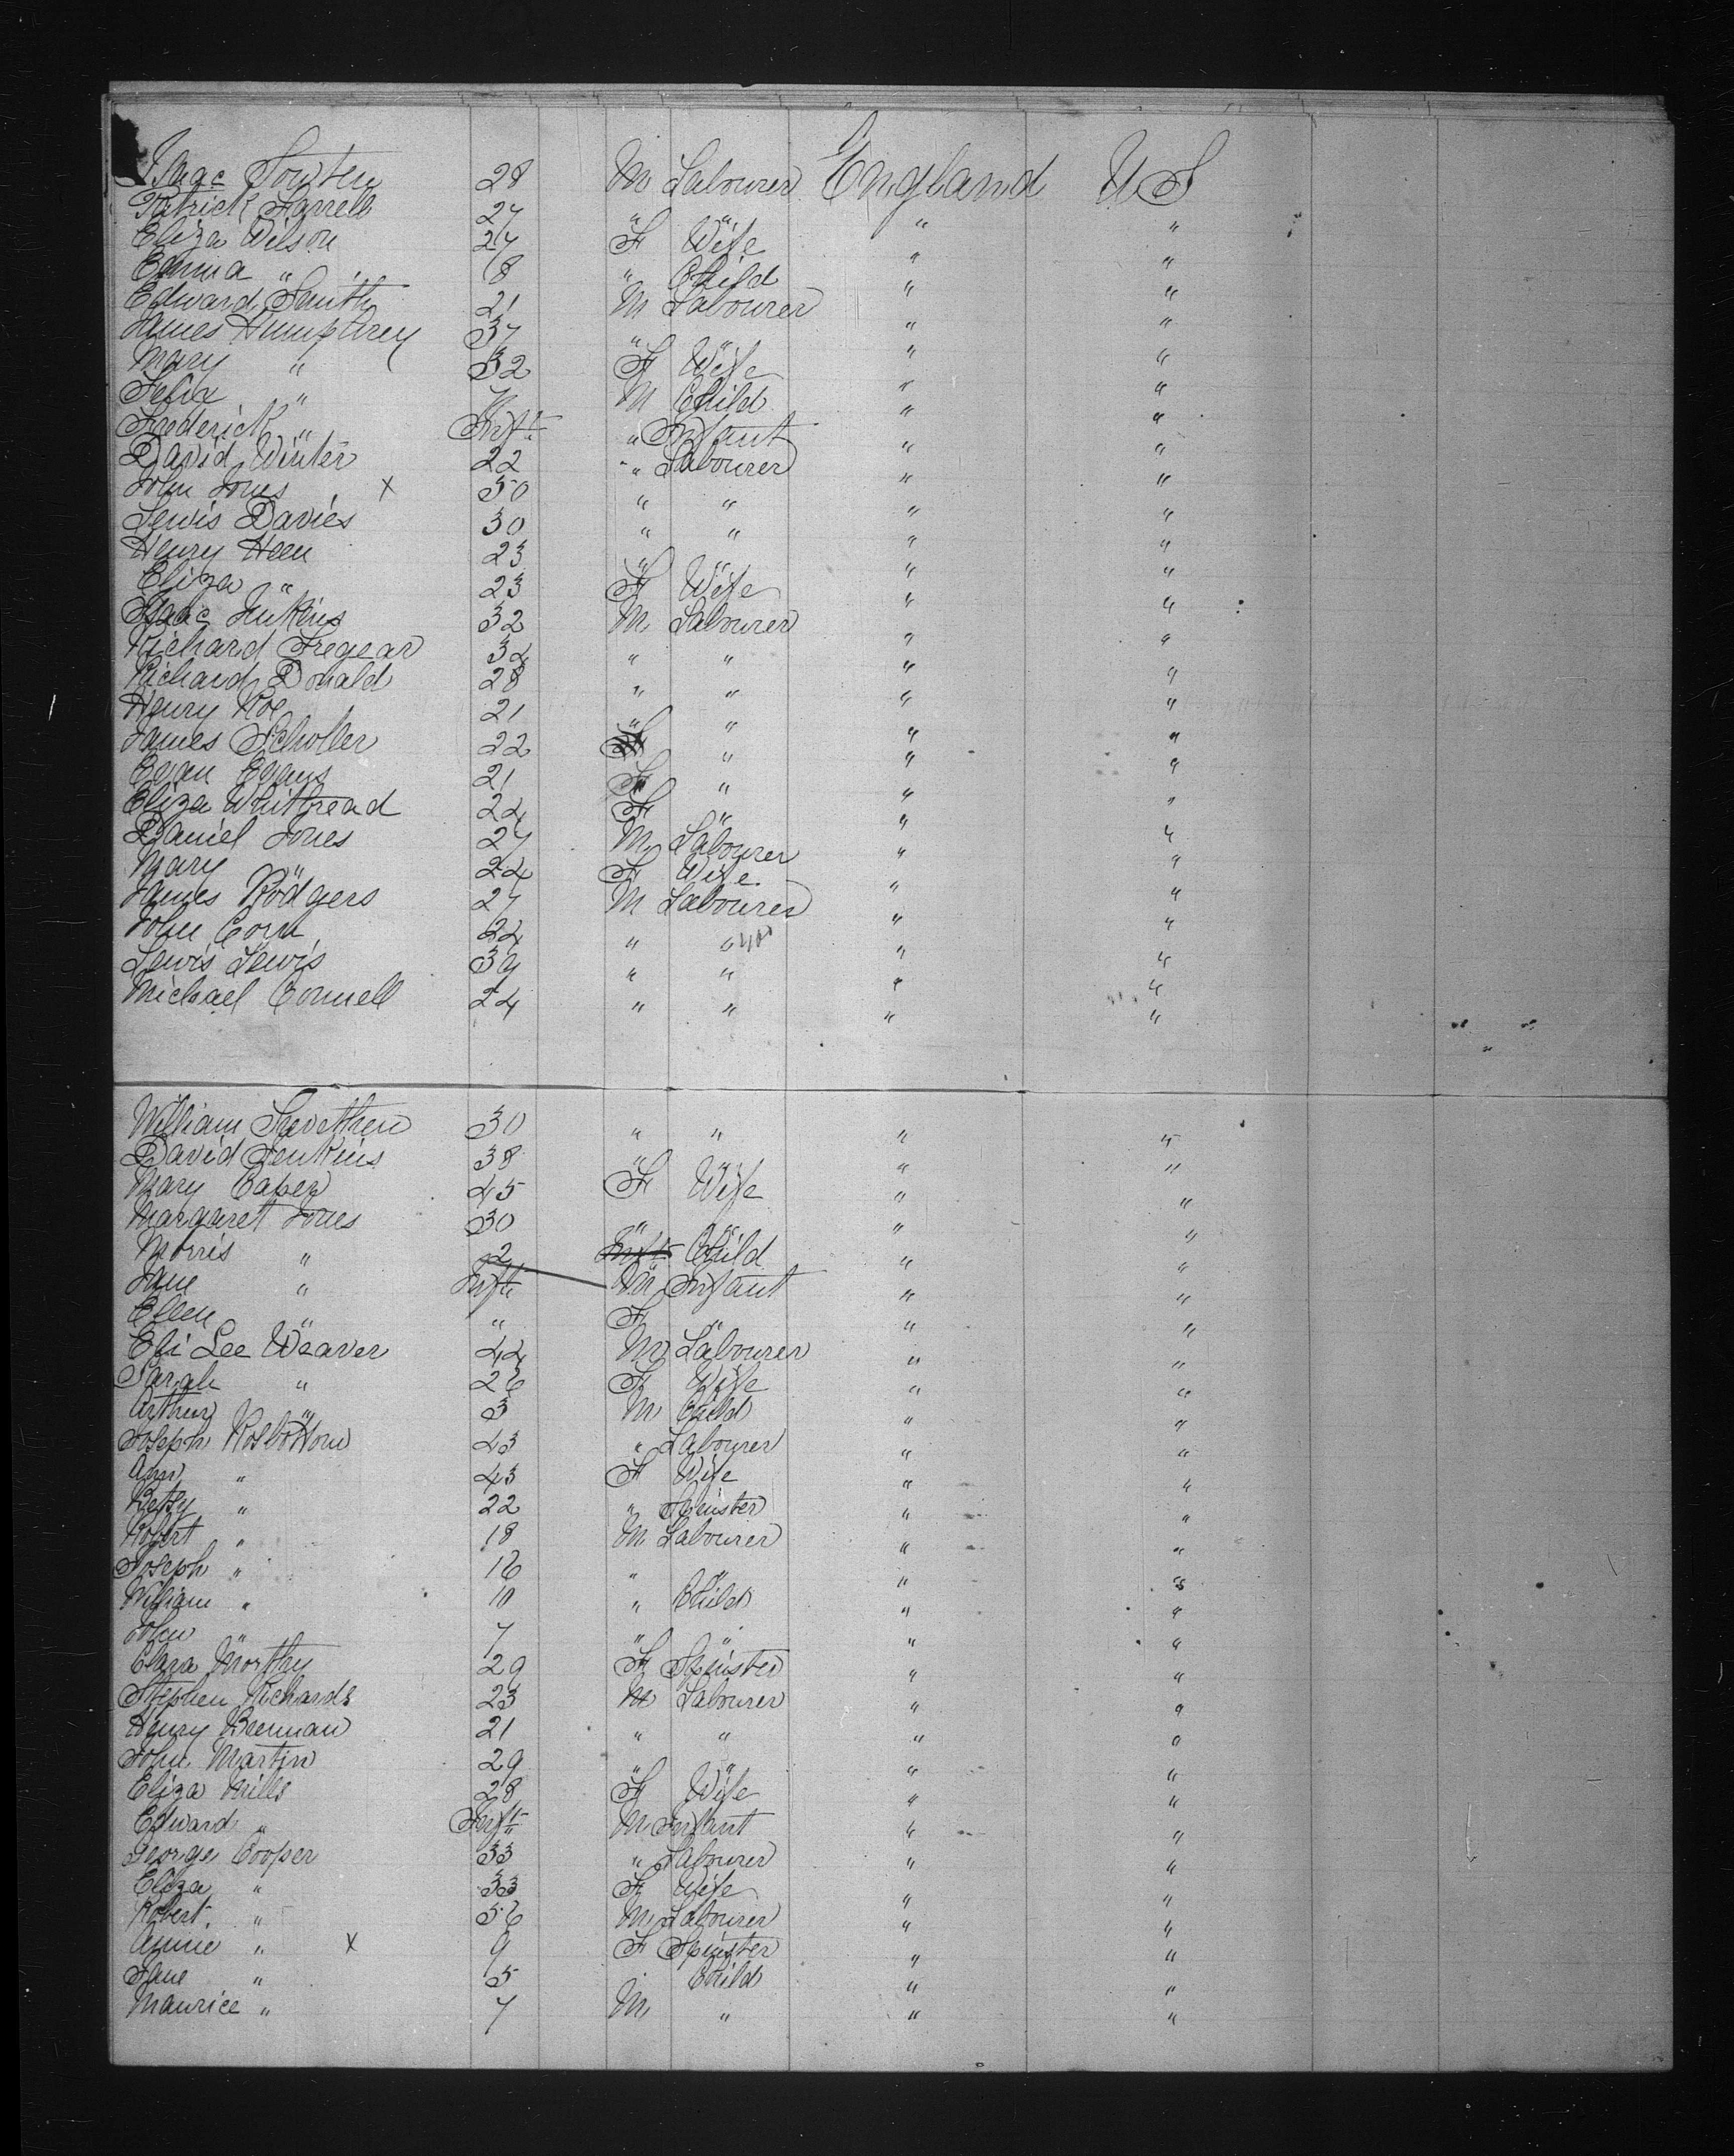 Isaac 28 M Labourer England U S
Patrick Farrell 27 " " " "
Eliza Wilson 27 F Wife " "
Emma " 8 " Child " "
Edward Smith 21 M Labourer " "
James Humphrey 37 " " " "
Mary " 32 F Wife " "
Felix " M Child " "
Frederick " Inft. " Infant " "
David Winter 22 " Labourer " "
John Jones x 50 " " " "
Lewis Davies 30 " " " "
Henry 23 " " " "
Eliza " 23 F Wife " "
Isaac 32 M Labourer " "
Richard Tregear 34 " " " "
Richard Donald 28 " " " "
Henry Roe 21 " " " "
James Scholler 22 " " "
Evan Evans 21 " " "
Eliza Whitbread 24 F " " "
Daniel Jones 27 M Labourer " "
Mary " 24 F Wife " "
James Rodgers 27 M Labourer " "
John Corn 24 " " " "
Lewis Lewis 39 " " " "
Michael Connell 24 " " " "
William 30 " " " "
David Jenkins 38 " " " "
Mary 45 F Wife " "
Margaret Jones 30 " " " "
Morris " 2 Inft Child " "
Jane " Inft. M Infant " "
Ellen " " F " " "
Eli Lee Weaver 44 M Labourer " "
Sarah " 26 F Wife " "
Arthur " 3 M Child " "
Joseph Rosbottom 43 " Labourer " "
Ann " 43 F Wife " "
Betsy " 22 " Spinster " "
Robert " 18 M Labourer " "
Joseph " 16 " " " "
William " 10 " Child " "
John " 7 " " " "
Clara Worthy 29 F Spinster " "
Stephen Richards 23 M Labourer " "
Henry 21 " " " "
John Martin 29 " " " "
Eliza Mills 28 F Wife " "
Edward " Inft. M Infant " "
George Cooper 33 " Labourer " "
Eliza " 33 F Wife " "
Robert " 56 M Labourer " "
Annie " x 9 F Spinster " "
Jane " 5 " Child " "
Maurice " 7 M " " "